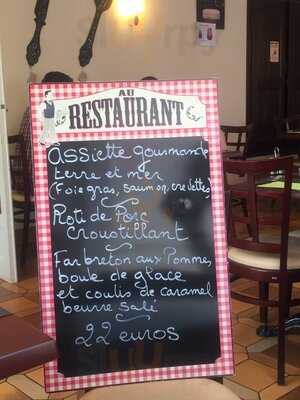 AU
RESTAURANT
Assiette gourmande
terre et mer
(Foie gras, saumon, crevettes)
Roti de Porc
Croustillant
Far breton aux Pommes,
boule de glace
et coulis de caramel
beurre salé
22 euros